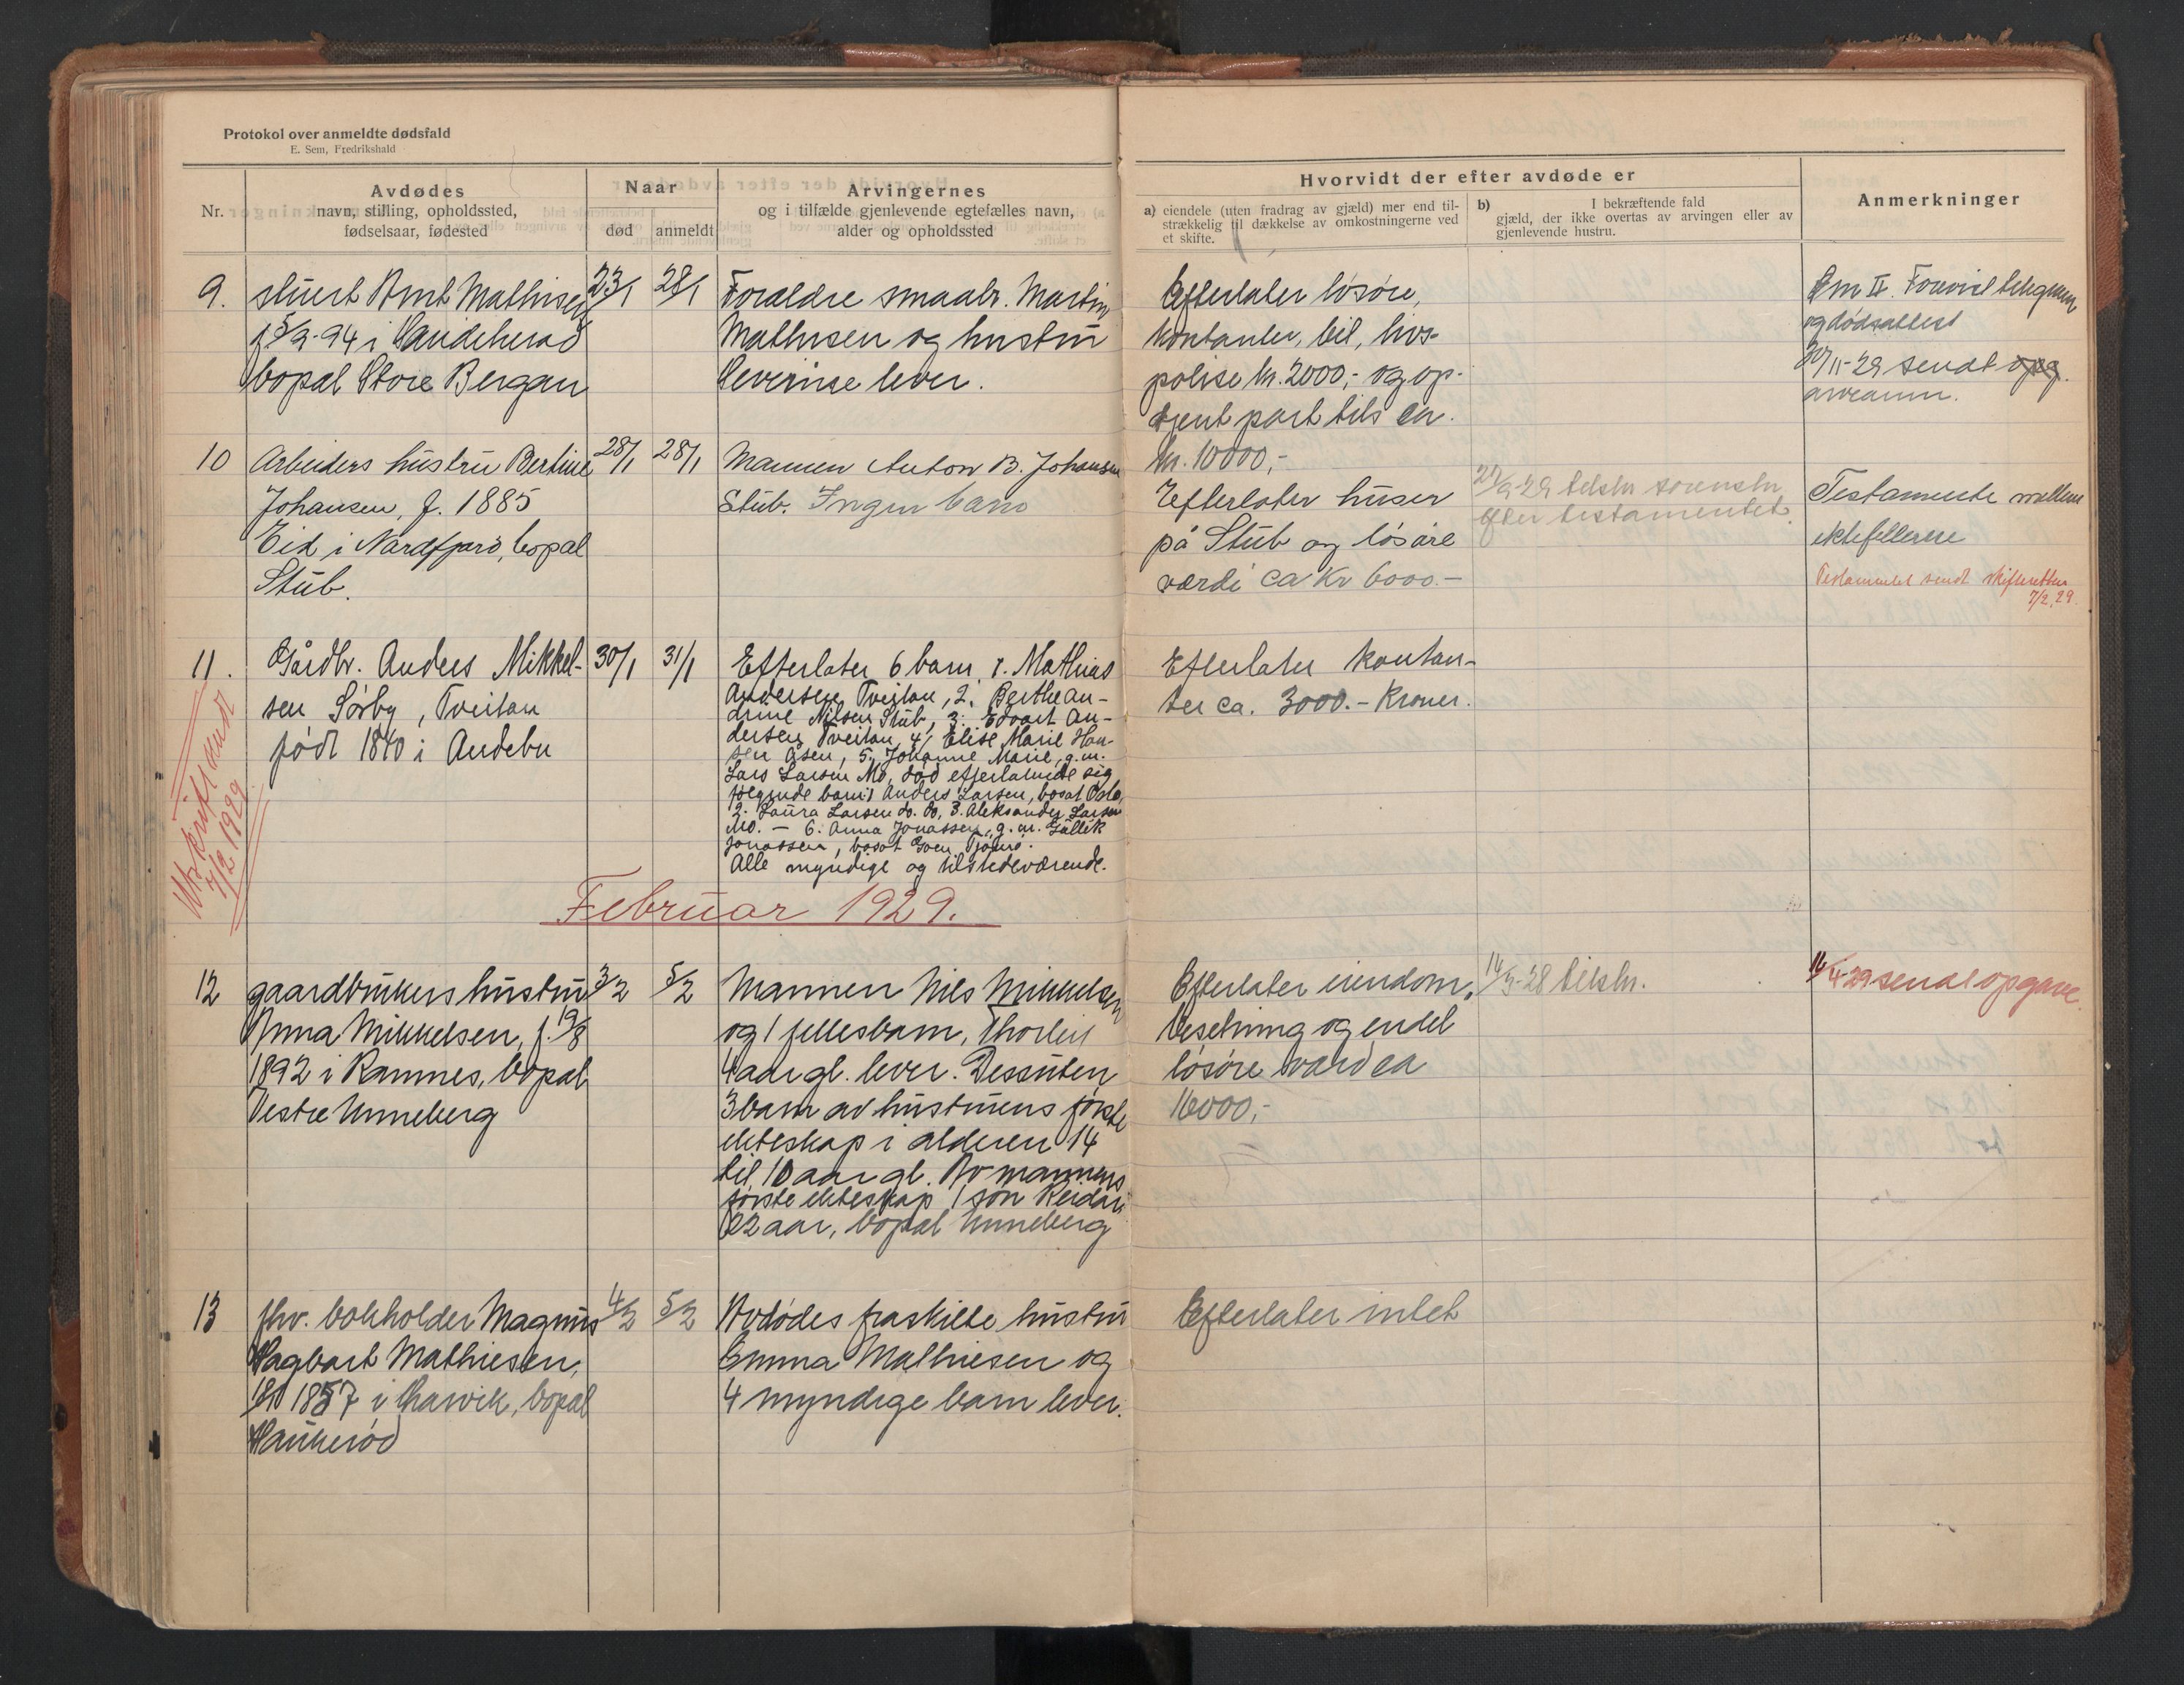 Protokol over anmeldte dødsfald
E. Sem, Fredrikshald
Nr.
Avdødes
navn, stilling, opholdssted,
fødselsaar, fødested
Naar
død
anmeldt
Arvingernes
og i tilfælde gjenlevende egtefælles navn,
alder og opholdssted
Hvorvidt der efter avdøde er
a) eiendele (uten fradrag av gjæld) mer end til-
strækkelig til dækkelse av omkostningerne ved
et skifte.
b) I bekræftende fald
gjæld, der ikke overtas av arvingen eller av
gjenlevende hustru.
Anmerkninger
9.
stuert Arnt Mathisen
f 5/9-94 i Sandeherad
bopæl Store Bergan
23/1
28/1
Foreldre smaabr. Martin
Mathisen og hustru
Severine lever.
Efterlater løsøre,
kontanter, bil, livs-
polise kr. 2000,- og op-
tjent part tils ca.
kr. 10000,-
Em II. telegram
og dødsattest
-29 sendt opg.
10
Arbeiders hustru Bertine
Johansen, f. 1885
Eid i Nordfjord, bopæl
Stub.
28/1
28/1
Mannen Anton B. Johansen
Stub. Ingen barn
Efterlater huser
på Stub og løsøre
værdi ca Kr 6000.-
-29 tilstr
efter testamentet.
Testamente mellem
ektefellerne
Testamentet sendt skifteretten
7/2.29.
11.
Utskrift sendt
7/2 1929
Gårdbr. Anders Mikkel-
sen Sørby, Tveitan
født 1840 i Andebu
30/1
31/1
Efterlater 6 barn, 1. Mathias
Andersen Tveitan, 2. Berthe An-
drine Nilsen Stub, 3. Edvart An-
dersen Tveitan, 4/ Elise Marie Han-
sen Åsen, 5. Johanne Marie, g.m.
Lars Larsen Mo, død efterlatende sig
følgende barn: 1 Anders Larsen, bosat Oslo,
2. Laura Larsen do. do, 3. Aleksander Larsen
Mo. — 6. Anna Jonassen, g.m. Gullik
Jonassen, bosat Tjømø.
Alle myndige og tilstedeværende.
Efterlater kontan-
ter ca. 3000.- Kroner.
Februar 1929.
12
gaardbrukers hustru
Anna Mikkelsen, f. 19/8
1892 i Ramnes, bopæl
Vestre Unneberg
3/2
5/2
Mannen Nils Mikkelsen
og 1 fellesbarn, Thorleif
4 aar gl. lever. Dessuten
3 barn av hustruens første
ekteskap i alderen 14
til 10 aar gl. Av mannens
første ekteskap 1 søn Reidar
22 aar, bopæl Unneberg
Efterlater eiendom,
besetning og endel
løsøre værd ca
16000,-
14/3-28 tilstr.
16/4-29 sendt opgave.
13
fhv. bokholder Magnus
Hagbart Mathiesen,
1857 i Larvik, bopæl
Haukerød
4/2
5/2
Avdødes fraskilte hustru
Emma Mathiesen og
4 myndige barn lever.
Efterlater intet